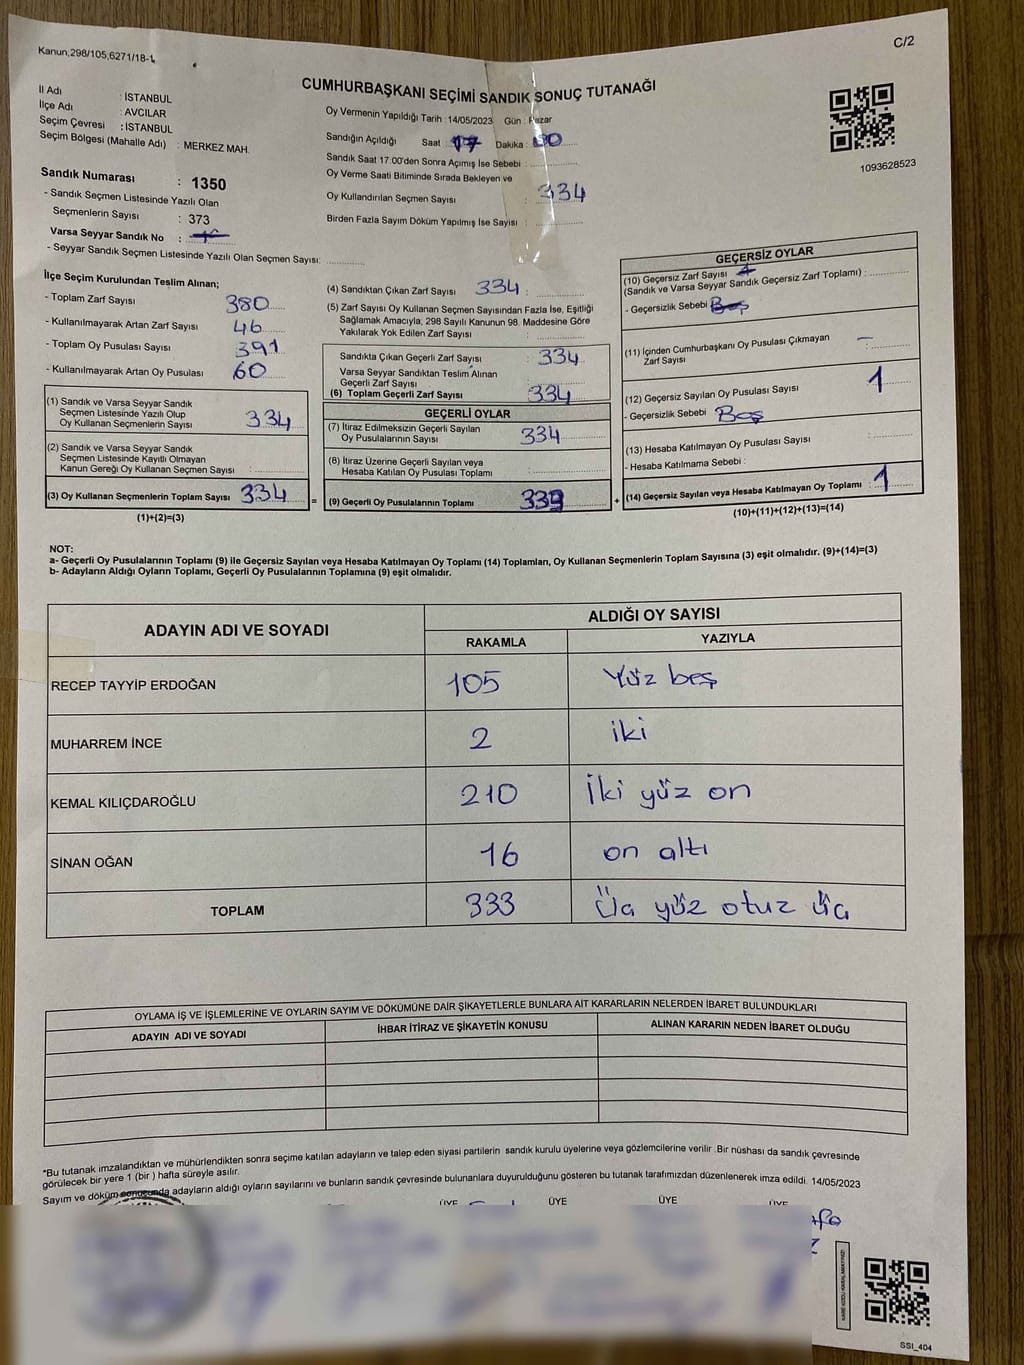 C/2
Kanun,298/105,6271/18-1
CUMHURBAŞKANI SEÇİMİ SANDIK SONUÇ TUTANAĞI
İl Adı : İSTANBUL
İlçe Adı : AVCILAR
Seçim Çevresi : İSTANBUL
Seçim Bölgesi (Mahalle Adı) : MERKEZ MAH.
Sandık Numarası : 1350
- Sandık Seçmen Listesinde Yazılı Olan
Seçmenlerin Sayısı : 373
Varsa Seyyar Sandık No :
- Seyyar Sandık Seçmen Listesinde Yazılı Olan Seçmen Sayısı:
Oy Vermenin Yapıldığı Tarih : 14/05/2023 Gün : Pazar
Sandığın Açıldığı Saat : 17 Dakika : 00
Sandık Saat 17:00'den Sonra Açımış İse Sebebi :
Oy Verme Saati Bitiminde Sırada Bekleyen ve
Oy Kullandırılan Seçmen Sayısı : 334
Birden Fazla Sayım Döküm Yapılmış İse Sayısı :
1093628523
İlçe Seçim Kurulundan Teslim Alınan;
- Toplam Zarf Sayısı 380
- Kullanılmayarak Artan Zarf Sayısı 46
- Toplam Oy Pusulası Sayısı 391
- Kullanılmayarak Artan Oy Pusulası 60
(1) Sandık ve Varsa Seyyar Sandık
Seçmen Listesinde Yazılı Olup
Oy Kullanan Seçmenlerin Sayısı 334
(2) Sandık ve Varsa Seyyar Sandık
Seçmen Listesinde Kayıtlı Olmayan
Kanun Gereği Oy Kullanan Seçmen Sayısı :
(3) Oy Kullanan Seçmenlerin Toplam Sayısı 334
(1)+(2)=(3)
=
(4) Sandıktan Çıkan Zarf Sayısı 334 :
(5) Zarf Sayısı Oy Kullanan Seçmen Sayısından Fazla İse, Eşitliği
Sağlamak Amacıyla, 298 Sayılı Kanunun 98. Maddesine Göre
Yakılarak Yok Edilen Zarf Sayısı :
Sandıkta Çıkan Geçerli Zarf Sayısı : 334
Varsa Seyyar Sandıktan Teslim Alınan
Geçerli Zarf Sayısı :
(6) Toplam Geçerli Zarf Sayısı 334
GEÇERLİ OYLAR
(7) İtiraz Edilmeksizin Geçerli Sayılan
Oy Pusulalarının Sayısı 334
(8) İtiraz Üzerine Geçerli Sayılan veya
Hesaba Katılan Oy Pusulası Toplamı :
(9) Geçerli Oy Pusulalarının Toplamı 333
+
GEÇERSİZ OYLAR
(10) Geçersiz Zarf Sayısı
(Sandık ve Varsa Seyyar Sandık Geçersiz Zarf Toplamı) :
- Geçersizlik Sebebi Boş
(11) İçinden Cumhurbaşkanı Oy Pusulası Çıkmayan
Zarf Sayısı : -
(12) Geçersiz Sayılan Oy Pusulası Sayısı : 1
- Geçersizlik Sebebi Boş
(13) Hesaba Katılmayan Oy Pusulası Sayısı :
- Hesaba Katılmama Sebebi :
(14) Geçersiz Sayılan veya Hesaba Katılmayan Oy Toplamı : 1
(10)+(11)+(12)+(13)=(14)
NOT:
a- Geçerli Oy Pusulalarının Toplamı (9) ile Geçersiz Sayılan veya Hesaba Katılmayan Oy Toplamı (14) Toplamları, Oy Kullanan Seçmenlerin Toplam Sayısına (3) eşit olmalıdır. (9)+(14)=(3)
b- Adayların Aldığı Oyların Toplamı, Geçerli Oy Pusulalarının Toplamına (9) eşit olmalıdır.
ADAYIN ADI VE SOYADI
ALDIĞI OY SAYISI
RAKAMLA YAZIYLA
RECEP TAYYİP ERDOĞAN 105 Yüz beş
MUHARREM İNCE 2 iki
KEMAL KILIÇDAROĞLU 210 İki yüz on
SİNAN OĞAN 16 on altı
TOPLAM 333 Üç yüz otuz üç
OYLAMA İŞ VE İŞLEMLERİNE VE OYLARIN SAYIM VE DÖKÜMÜNE DAİR ŞİKAYETLERLE BUNLARA AİT KARARLARIN NELERDEN İBARET BULUNDUKLARI
ADAYIN ADI VE SOYADI İHBAR İTİRAZ VE ŞİKAYETİN KONUSU ALINAN KARARIN NEDEN İBARET OLDUĞU
*Bu tutanak imzalandıktan ve mühürlendikten sonra seçime katılan adayların ve talep eden siyasi partilerin sandık kurulu üyelerine veya gözlemcilerine verilir .Bir nüshası da sandık çevresinde
görülecek bir yere 1 (bir ) hafta süreyle asılır.
Sayım ve döküm sonucunda adayların aldığı oyların sayılarını ve bunların sandık çevresinde bulunanlara duyurulduğunu gösteren bu tutanak tarafımızdan düzenlenerek imza edildi. 14/05/2023
ÜYE ÜYE ÜYE ÜYE
SSI_404